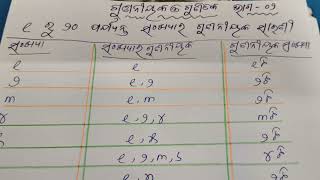 ଗୁଣନୀୟକ ଓ ଗୁଣିତକ ଭାଗ - ୦୨
୧ ରୁ ୨୦ ପର୍ଯ୍ୟନ୍ତ ସଂଖ୍ୟାର ଗୁଣନୀୟକ ସାରଣୀ
ସଂଖ୍ୟା ସଂଖ୍ୟାର ଗୁଣନୀୟକ ଗୁଣନୀୟକ ସଂଖ୍ୟା
୧ ୧ ୧ଟି
୨ ୧,୨ ୨ଟି
୩ ୧,୩ ୨ଟି
୪ ୧,୨,୪ ୩ଟି
୧,୫ ୨ଟି
୧,୨,୩,୬ ୪ଟି
୧,୭ ୨ଟି